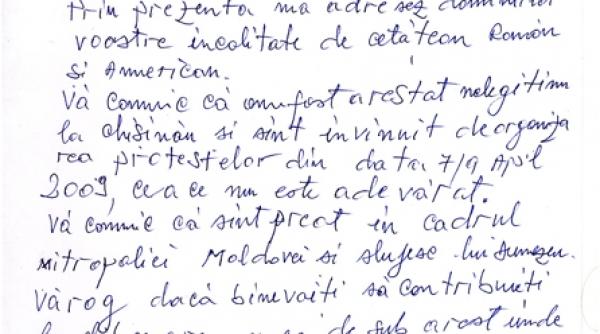 Prin prezenta mă adresez dumneilor
voastre în calitate de cetățean Român
și American.
Vă comunic că am fost arestat nelegitim
la Chișinău și sînt învinuit de organiza
rea protestelor din data 7/9 April
2009, ceea ce nu este adevărat.
Vă comunic că sînt preot în cadrul
Mitropoliei Moldovei și slujesc lui Dumnezeu.
Vă rog dacă binevoiți să contribuiți
de sub arest unde